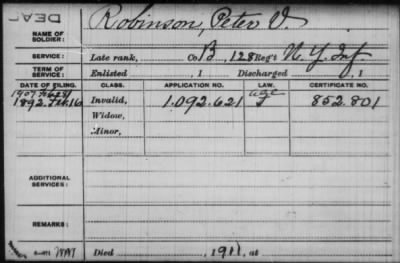 DEAD
NAME OF SOLDIER: Robinson, Peter V.
SERVICE: Late rank, Co B, 128 Reg't N.Y. Inf.
TERM OF SERVICE: Enlisted , 1 Discharged , 1
DATE OF FILING. CLASS. APPLICATION NO. LAW. CERTIFICATE NO.
1907 Age
1892. Feb 16 Invalid, 1.092.621 J 852.801
Widow,
Minor,
ADDITIONAL SERVICES:
REMARKS:
Died , 1911, at